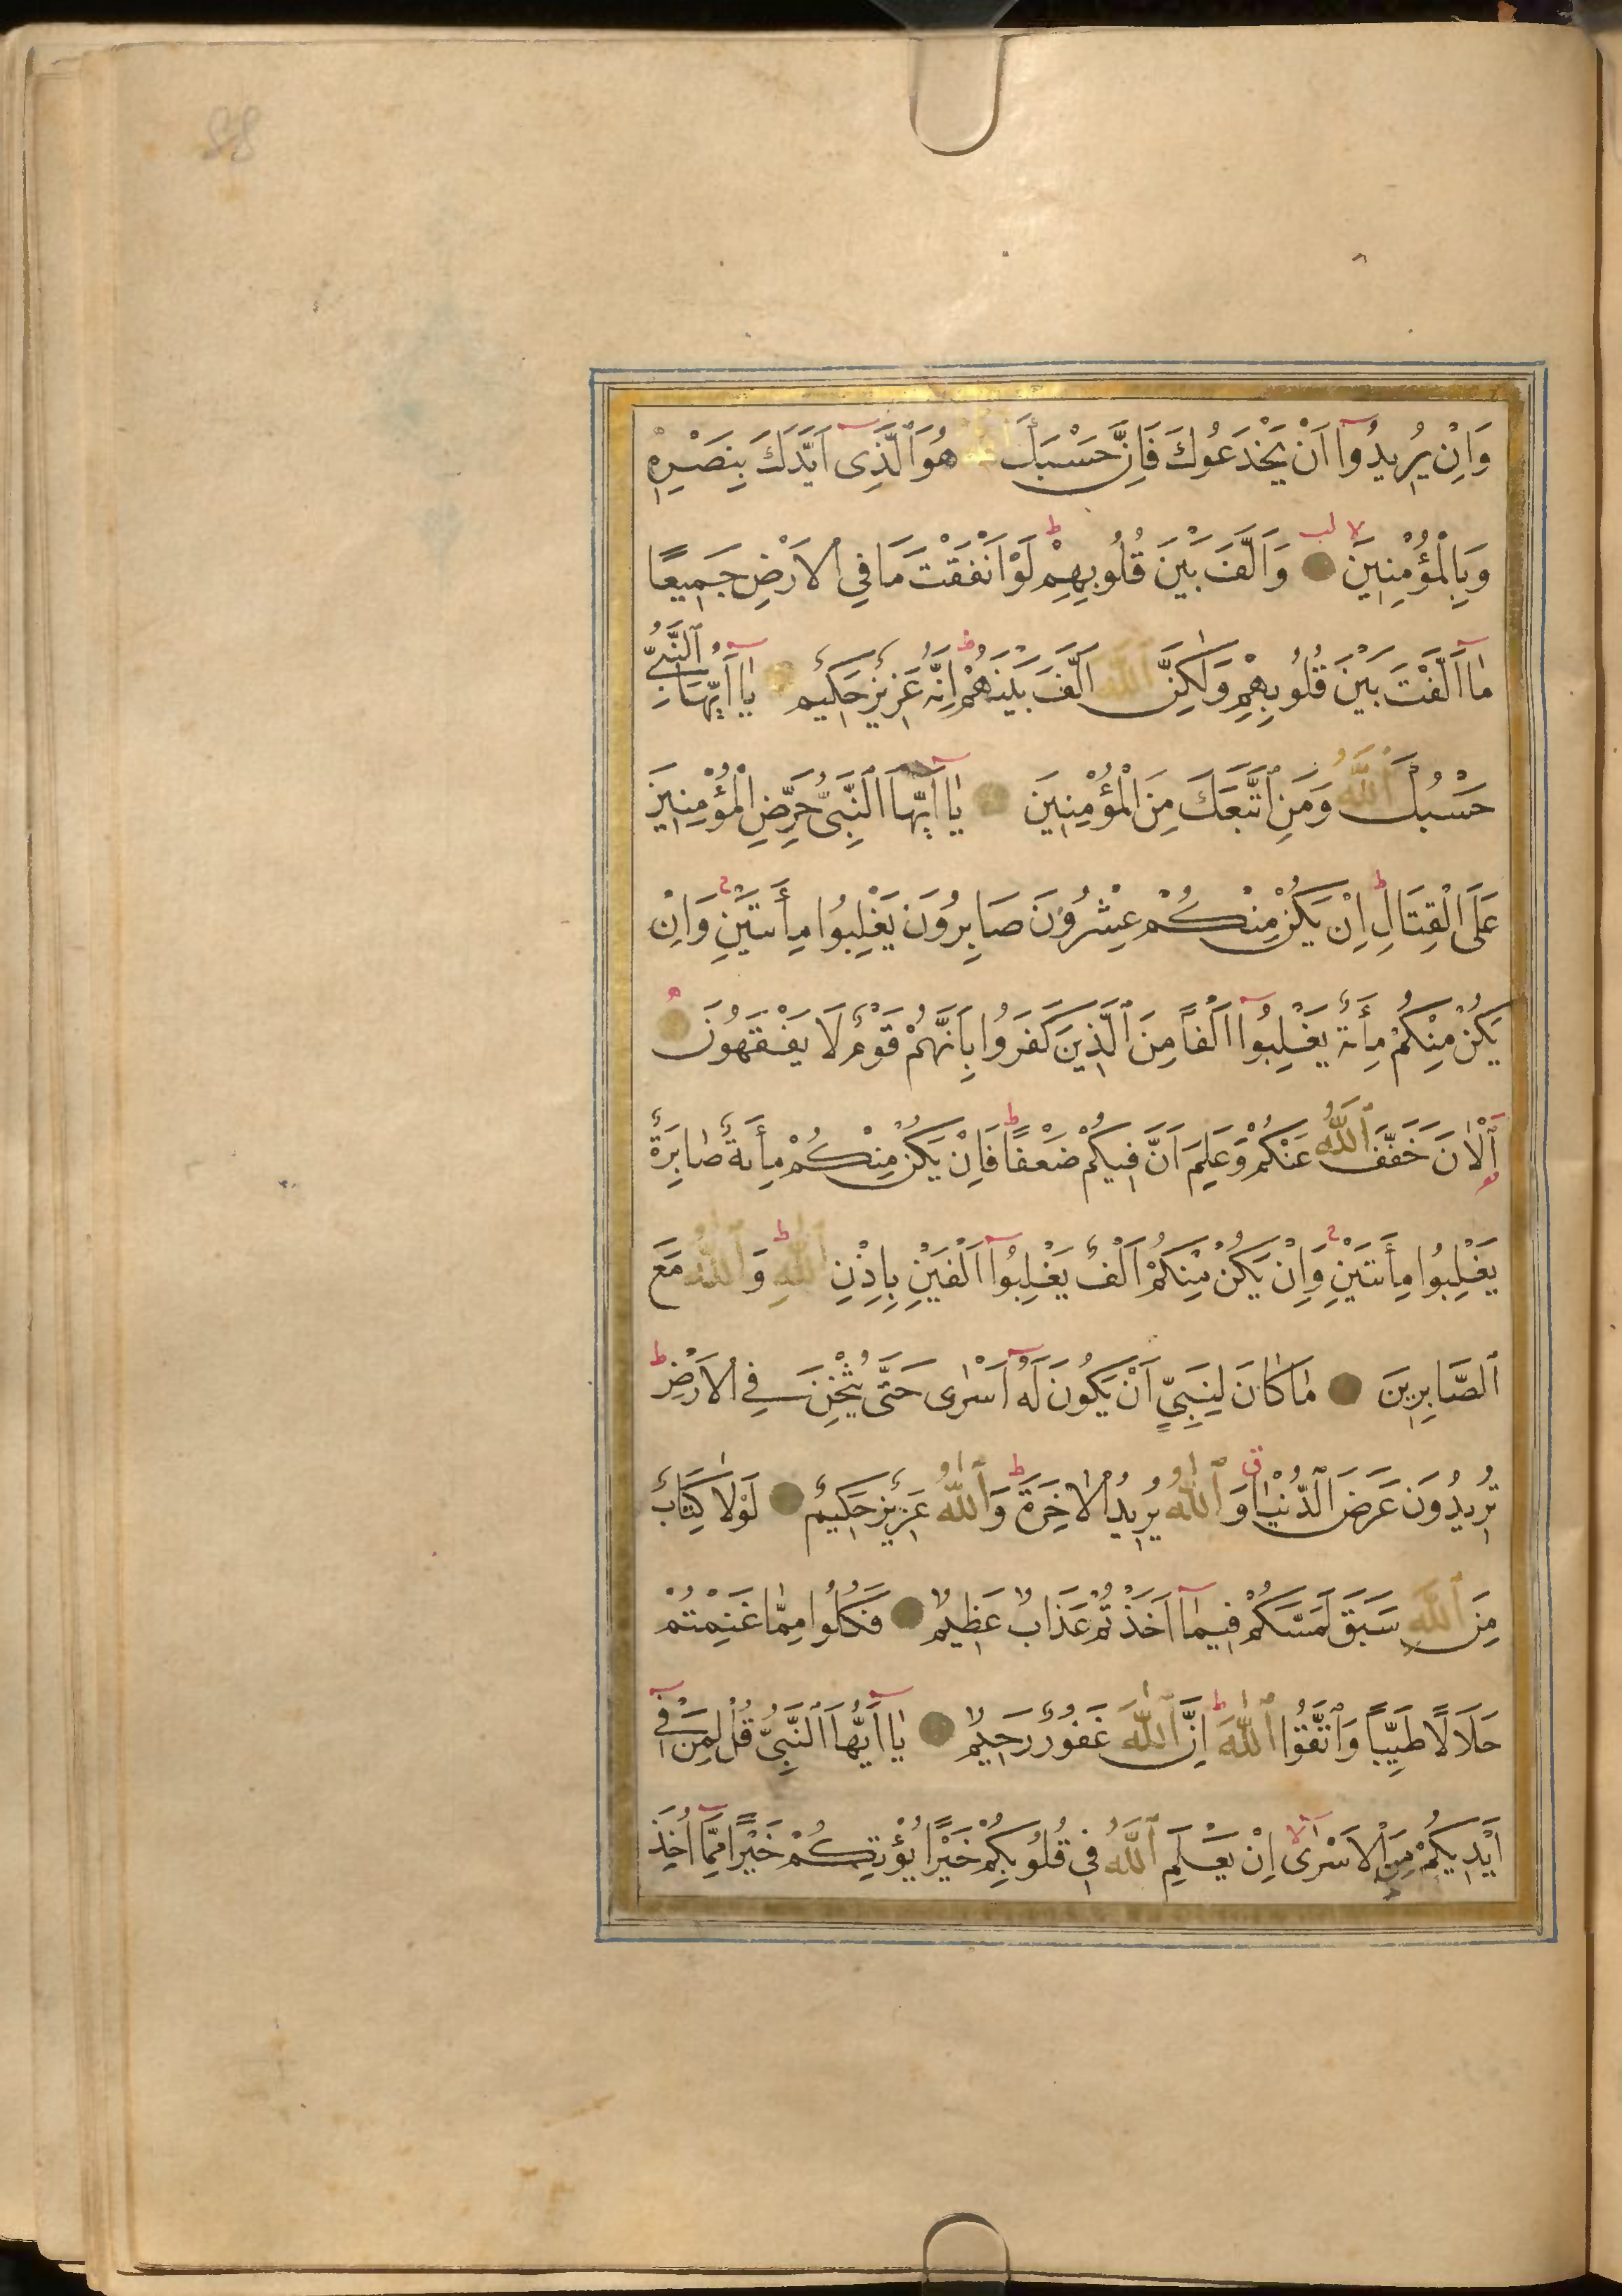 وَاِنْ يُرِيدُوا اَنْ يَخْدَعُوكَ فَاِنَّ حَسْبَكَ اللّٰهُ هُوَ الَّذِى اَيَّدَكَ بِنَصْرِهِ
وَبِالْمُؤْمِنِينَ وَاَلَّفَ بَيْنَ قُلُوبِهِمْ لَوْ اَنْفَقْتَ مَا فِي الْاَرْضِ جَمِيعًا
مَا اَلَّفْتَ بَيْنَ قُلُوبِهِمْ وَلٰكِنَّ اللّٰهَ اَلَّفَ بَيْنَهُمْ اِنَّهُ عَزِيزٌ حَكِيمٌ يَا اَيُّهَا النَّبِيُّ
حَسْبُكَ اللّٰهُ وَمَنِ اتَّبَعَكَ مِنَ الْمُؤْمِنِينَ يَا اَيُّهَا النَّبِىُّ حَرِّضِ الْمُؤْمِنِينَ
عَلَى الْقِتَالِ اِنْ يَكُنْ مِنْكُمْ عِشْرُونَ صَابِرُونَ يَغْلِبُوا مِأَتَيْنِ وَاِنْ
يَكُنْ مِنْكُمْ مِأَةٌ يَغْلِبُوا اَلْفًا مِنَ الَّذِينَ كَفَرُوا بِاَنَّهُمْ قَوْمٌ لَا يَفْقَهُونَ
اَلْاٰنَ خَفَّفَ اللّٰهُ عَنْكُمْ وَعَلِمَ اَنَّ فِيكُمْ ضَعْفًا فَاِنْ يَكُنْ مِنْكُمْ مِأَةٌ صَابِرَةٌ
يَغْلِبُوا مِأَتَيْنِ وَاِنْ يَكُنْ مِنْكُمْ اَلْفٌ يَغْلِبُوا اَلْفَيْنِ بِاِذْنِ اللّٰهِ وَاللّٰهُ مَعَ
الصَّابِرِينَ مَا كَانَ لِنَبِيٍّ اَنْ يَكُونَ لَهُ اَسْرٰى حَتّٰى يُثْخِنَ فِي الْاَرْضِ
تُرِيدُونَ عَرَضَ الدُّنْيَا وَاللّٰهُ يُرِيدُ الْاٰخِرَةَ وَاللّٰهُ عَزِيزٌ حَكِيمٌ لَوْلَا كِتَابٌ
مِنَ اللّٰهِ سَبَقَ لَمَسَّكُمْ فِيمَا اَخَذْتُمْ عَذَابٌ عَظِيمٌ فَكُلُوا مِمَّا غَنِمْتُمْ
حَلَالًا طَيِّبًا وَاتَّقُوا اللّٰهَ اِنَّ اللّٰهَ غَفُورٌ رَحِيمٌ يَا اَيُّهَا النَّبِىُّ قُلْ لِمَنْ فِى
اَيْدِيكُمْ مِنَ الْاَسْرٰى اِنْ يَعْلَمِ اللّٰهُ فِى قُلُوبِكُمْ خَيْرًا يُؤْتِكُمْ خَيْرًا مِمَّا اُخِذَ